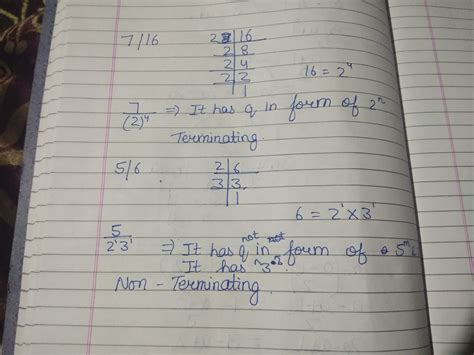 7/16
2 16
2 8
2 4
2 2
1
16 = 2⁴
7/(2)⁴ ⇒ It has q in form of 2ⁿ
Terminating.
5/6
2 6
3 3
1
6 = 2¹ × 3¹
5/2¹3¹ ⇒ It has q not in form of 5ᵐ
It has 3
Non - Terminating.